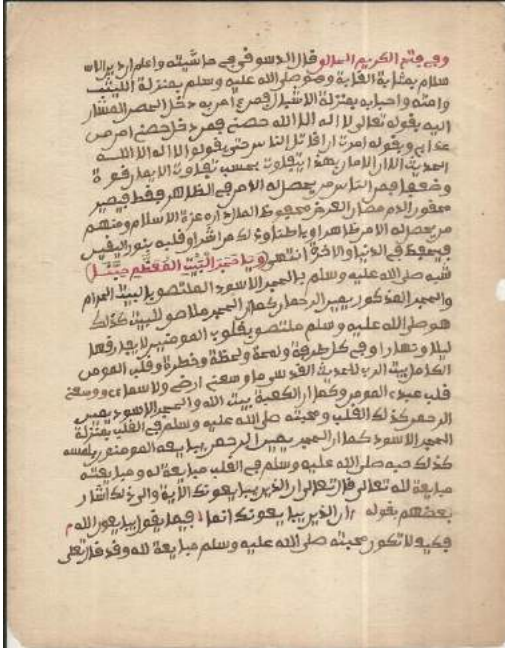 وفي فتح الكريم المالي وقال الدسوقي في حاشيته واعلم ان دين الاسـ
سلام بمثابة الغابة وهو صلى الله عليه وسلم بمنزلة الليث
وامته واحبابه بمنزلة الاشبال فمن امن به دخل الحصن المشار
اليه بقوله تعالى لا اله الا الله حصني فمن دخل حصني امن من
عذابي وبقوله امرت ان اقاتل الناس حتى يقولوا لا اله الا الله
الحديث الا ان الامان بهذا يتفاوت بحسب تفاوت الايمان قوة
وضعفا فمن الناس من يحصل له الامن في الظاهر فقط فيصير
محقون الدم مصان العرض محفوظ المال دارءه عزة الاسلام ومنهم
من يحصل له الامن ظاهرا وباطنا وذلك من اشرق قلبه بنور اليقين
فيحفظ في الدنيا والاخرة انتهى (ويا حجر البيت المعظم حبنا)
شبه صلى الله عليه وسلم بالحجر الاسود الملتصق بالبيت الحرام
والحجر المذكور يمين الرحمن كما ان الحجر ملاصق للبيت كذلك
هو صلى الله عليه وسلم ملتصق بقلوب المومنين لا يفارقها
ليلا ونهارا وفي كل طرفة ولمحة ولحظة وخطرة وقلب المومن
الكامل بيت الرب للحديث القدسي ما وسعني ارضي ولا سماءي ووسعني
قلب عبدي المومن وكما ان الكعبة بيت الله والحجر الاسود يمين
الرحمن كذلك القلب ومحبته صلى الله عليه وسلم في القلب بمنزلة
الحجر الاسود كما ان الحجر يمين الرحمن يبايعه المومنون بلمسه
كذلك حبه صلى الله عليه وسلم في القلب مبايعة له ومبايعته
مبايعة لله تعالى قال تعالى ان الذين يبايعونك الاية والى ذلك اشار
بعضهم بقوله ان الذين يبايعونك انما فيما يقول يبايعون الله
فكيف لا تكون محبته صلى الله عليه وسلم مبايعة لله وقد قال تعلى